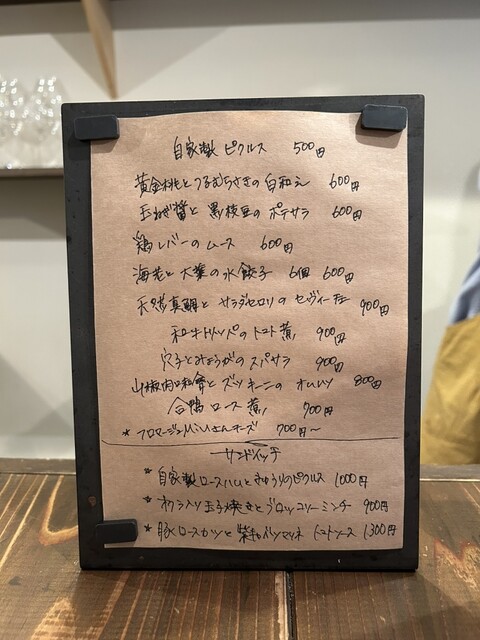 自家製 ピクルス 500円
黄金桃とつるむらさきの白和え 600円
玉ねぎ醤と黒枝豆の ポテサラ 600円
鶏レバーの ムース 600円
海老と大葉の水餃子 6個 600円
天然真鯛と サラダセロリの セヴィーチェ 900円
和牛トリッパの トマト煮 900円
穴子とみょうがの スパサラ 900円
山椒肉味噌とズッキーニの オムレツ 800円
合鴨 ロース煮 900円
* フロマージュ チーズ 700円〜
サンドイッチ
* 自家製ロースハムときゅうりのピクルス 1000円
* オクラ入り玉子焼きと ブロッコリーミンチ 900円
* 豚ロースカツと 紫キャベツマリネ トマトソース 1300円